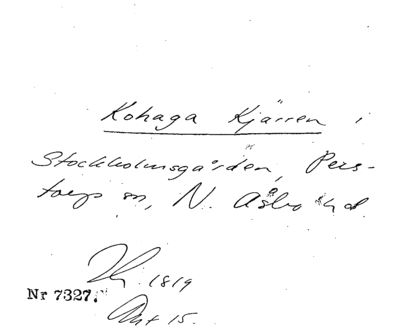 Kohaga Kjärren i
Stockholmsgården, Pers-
torps sn, N. Åsbo hd.
1819
Nr 7327.
Akt 15.